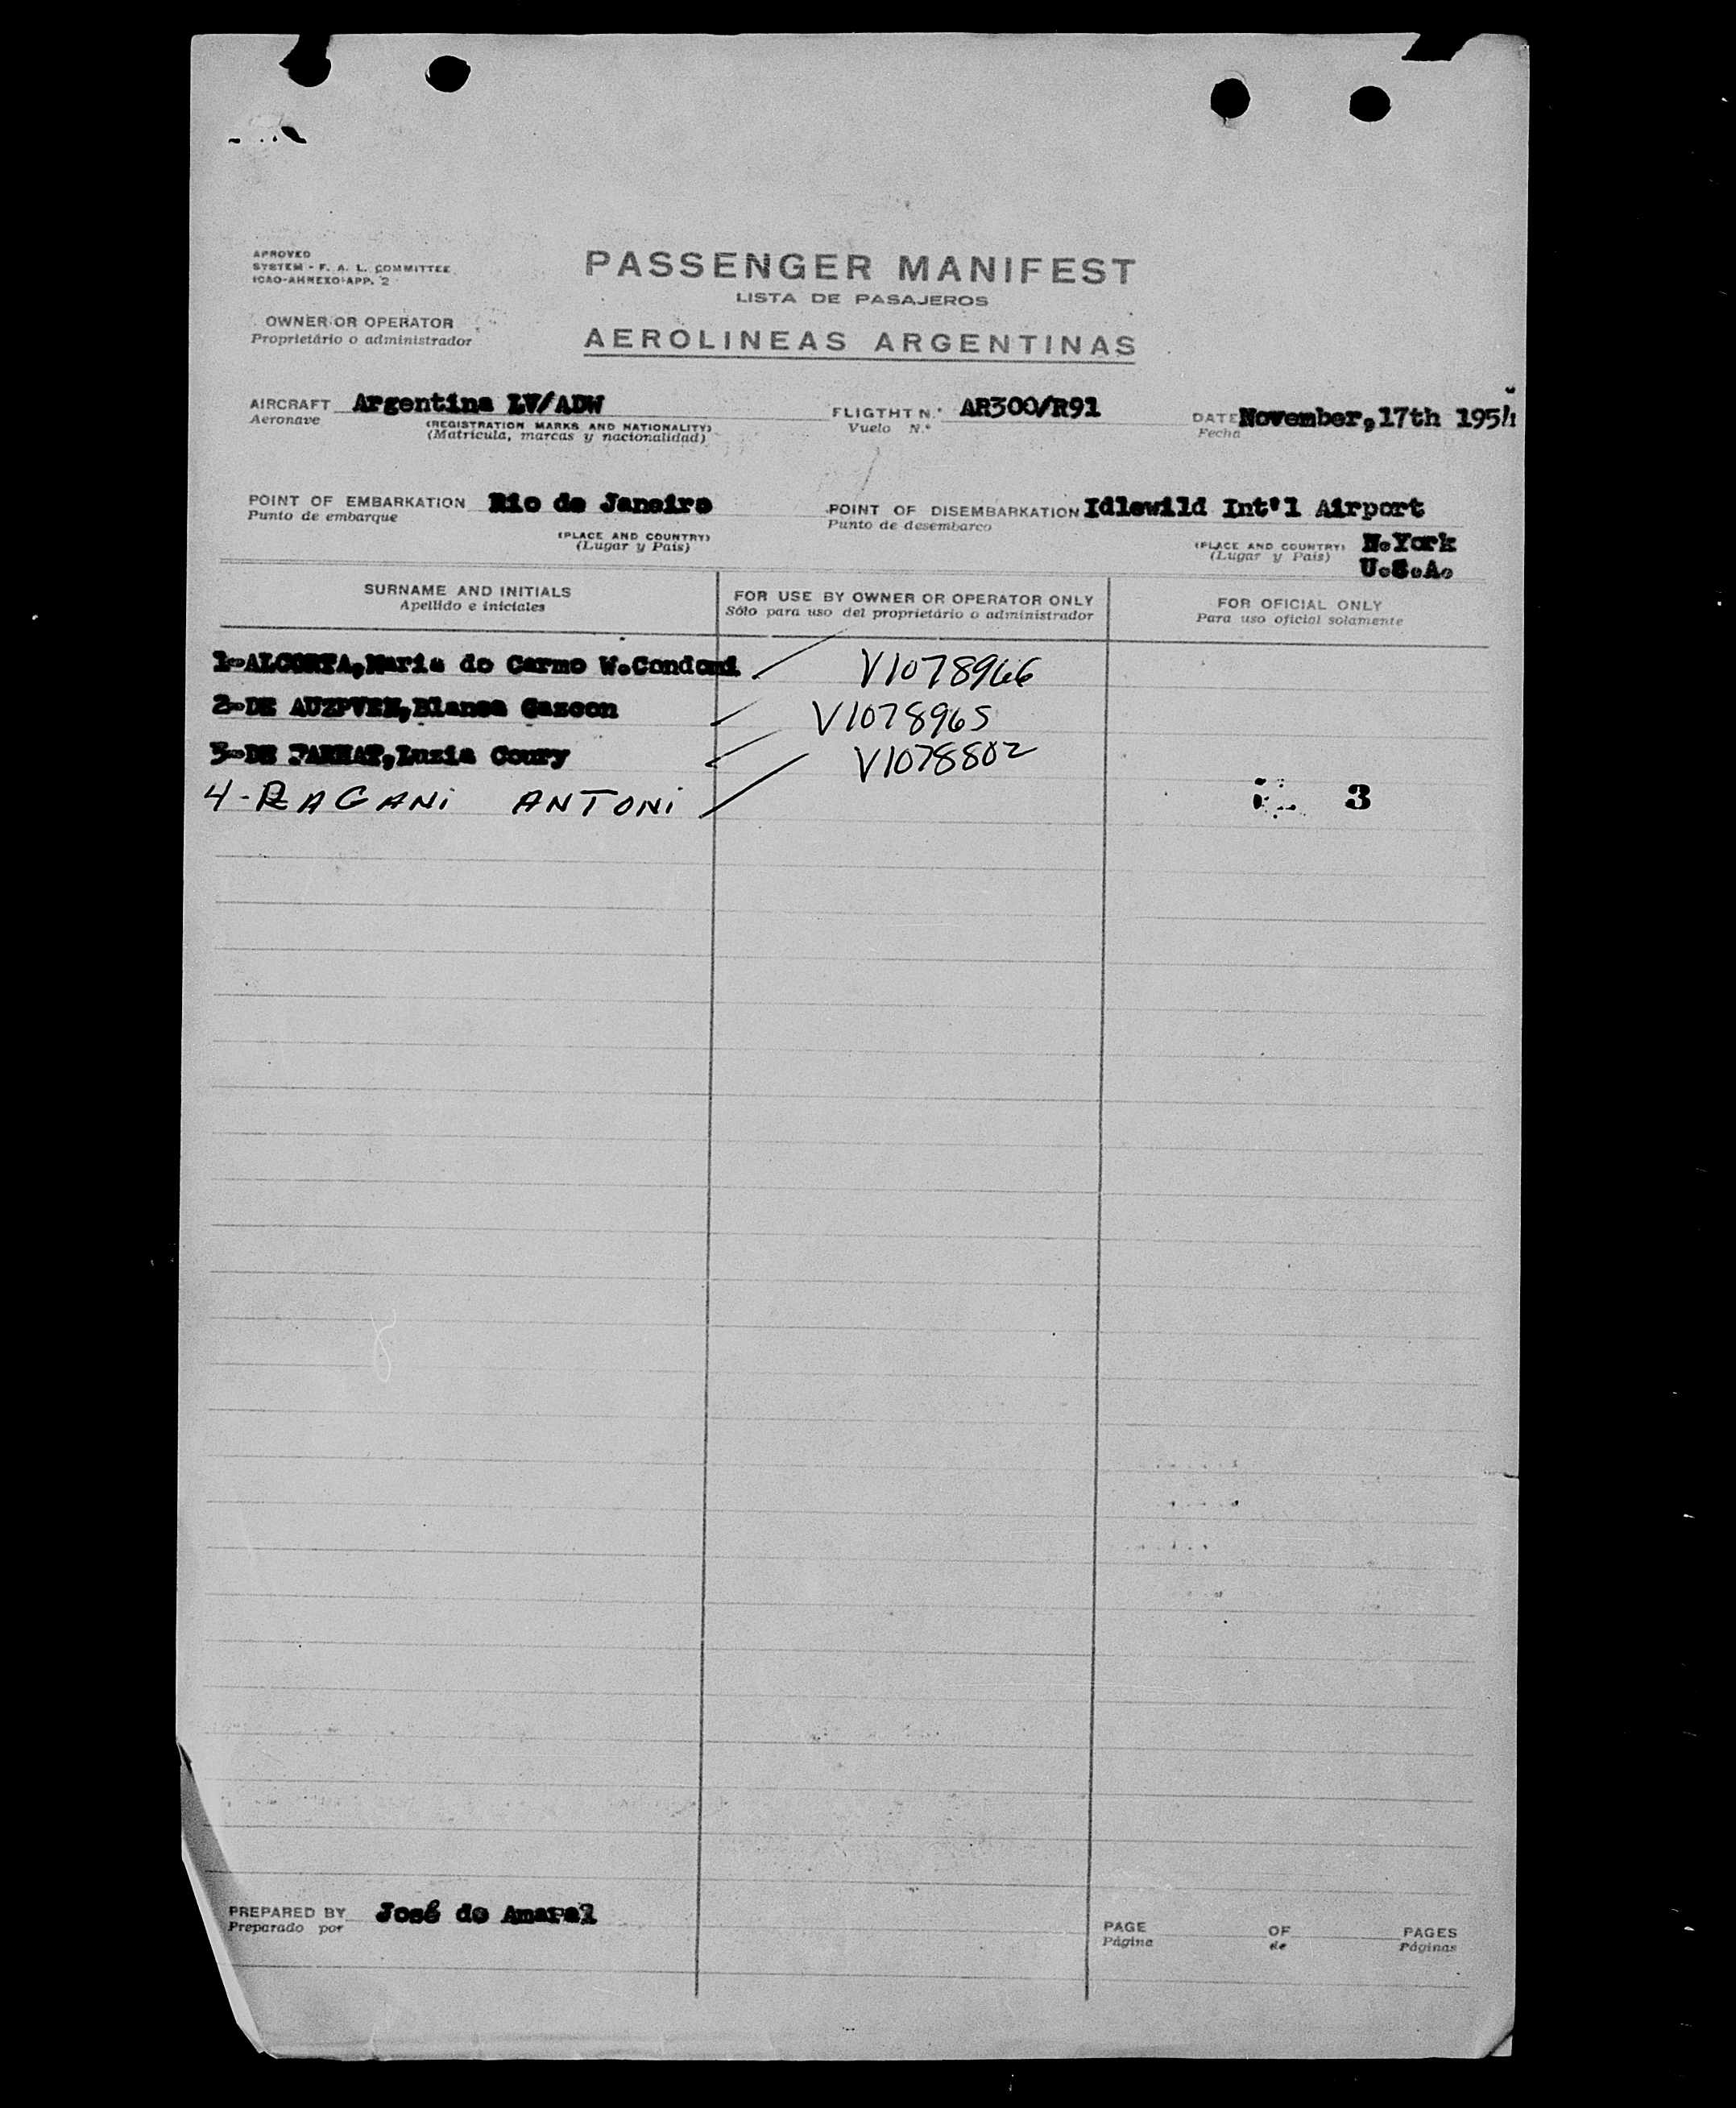 APROVED
SYSTEM - F. A. L. COMMITTEE
ICAO-ANNEXO-APP. 2
PASSENGER MANIFEST
LISTA DE PASAJEROS
OWNER OR OPERATOR
Proprietário o administrador
AEROLINEAS ARGENTINAS
AIRCRAFT Argentina LV/ADW
Aeronave
(REGISTRATION MARKS AND NATIONALITY)
(Matricula, marcas y nacionalidad)
FLIGTHT N.° AR300/R91
Vuelo N.°
DATE November,17th 1954
Fecha
POINT OF EMBARKATION Rio de Janeiro
Punto de embarque
(PLACE AND COUNTRY)
(Lugar y Pais)
POINT OF DISEMBARKATION Idlewild Int'l Airport
Punto de desembarco
(PLACE AND COUNTRY) N.York
(Lugar y Pais) U.S.A.
SURNAME AND INITIALS
Apellido e iniciales
FOR USE BY OWNER OR OPERATOR ONLY
Sólo para uso del proprietário o administrador
FOR OFICIAL ONLY
Para uso oficial solamente
1-ALCORTA,Maria do Carmo W.Condomi V1078966
2-DE Blanca Gascon V1078965
3-DE FARHAT,Luzia Coury V1078802
4-RAGANI ANTONI 3
PREPARED BY José do Amaral
Preparado por
PAGE OF PAGES
Página de Páginas